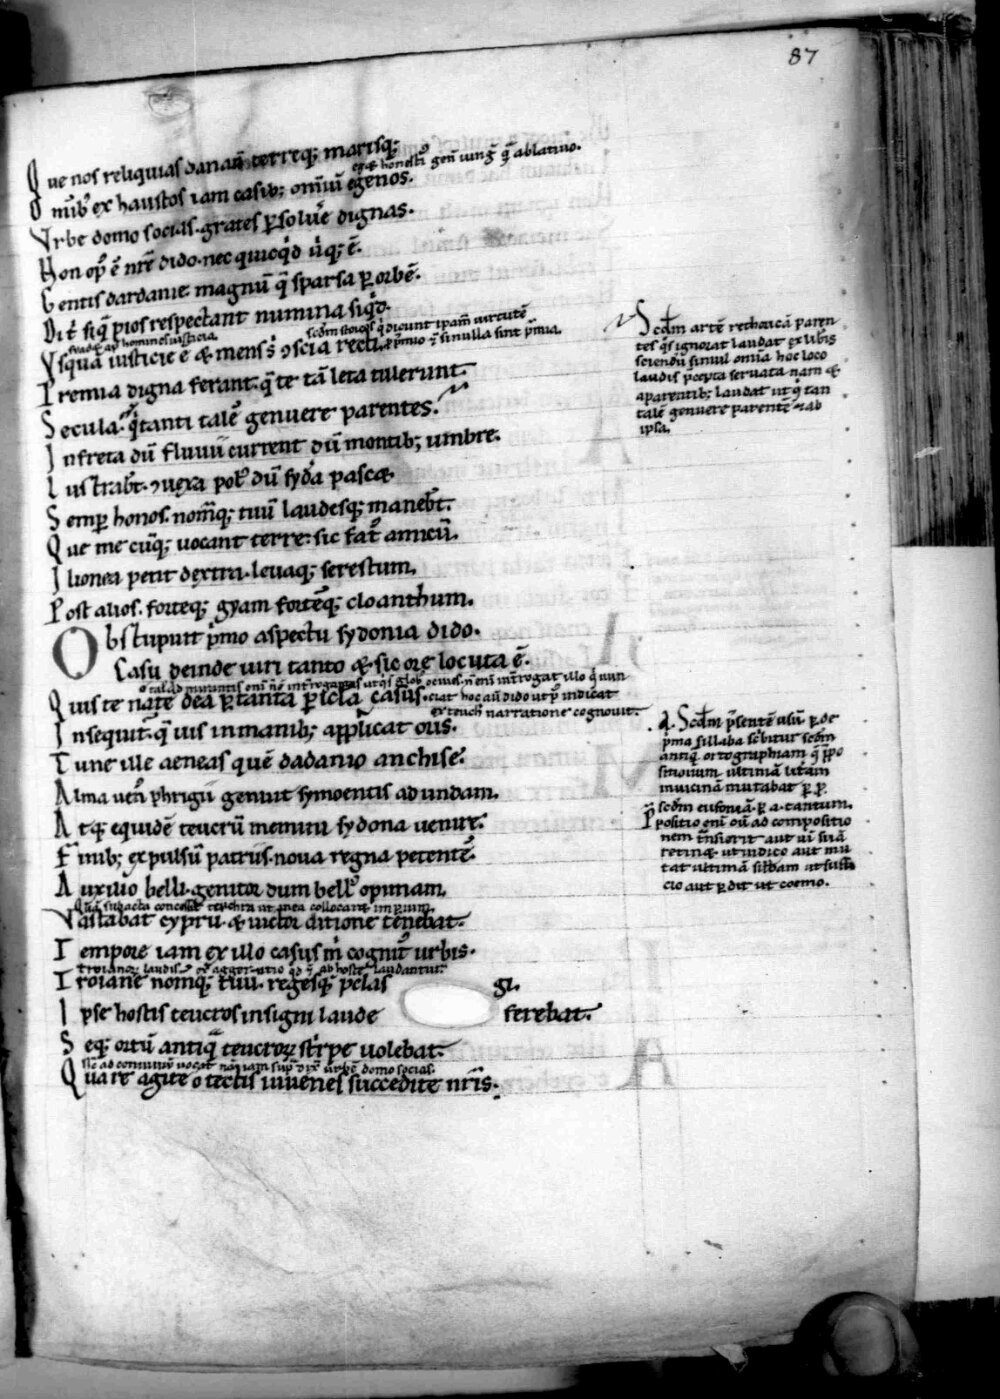 87
Que nos reliquias danaū terreq; marisq;
egeo honesti' gen̄ iung̃ q̄ ablatiuo.
Omib' exhaustos iam casib; omiū egenos.
Vrbe domo socias. grates psolue' dignas.
Non op' ē nr̄e dido. nec quicq'd ūq; ē.
Gentis dardanie magnū q̄ sparsa p orbē.
Dit' siq̄ pios respectant numina siq'd.
Vsquā iusticie ē & mens s' ɔscia recti.
Premia digna ferant. q̄ te tā leta tulerunt.
Secula. q̄ tanti talē genuere parentes.
In freta dū fluuii current dū montib; umbre.
Lustrab't. ɔuexa pol' dū syd'a pascæ.
Semp honos. nom̄q; tuū laudesq; maneb't.
Que me cūq; uocant terre: sic fat' amicū.
Ilionea petit dextra. leuaq; serestum.
Post alios. forteq; gyam fortēq; cloanthum.
Obstupuit p'mo aspectu sydonia dido.
Casu deinde uiri tanto & sic ore locuta ē.
Quis te nate dea p tanta picla casus.
ciat hoc aū dido ut p' indicat
ex teuch' narratione cognouit.
Insequit'. q̄ uis inmanib; applicat oris.
Tune ille aeneas quē dadanio anchise.
Alma uen' phrigii genuit symoentis ad undam.
Atq; equidē teucrū memini sydona uenire.
Finib; expulsū patriis. noua regna petentē.
Auxilio belli. genitor dum bell' opimam.
Vastabat cypru. & uictor ditione tenebat.
Tempore iam ex illo casus m̄ cognit' urbis.
Troiane nomq; tuū. regesq; pelas gi.
Ipse hostis teucros insigni laude ferebat.
Seq; ortū antiq̄ teucrorꝝ stirpe uolebat.
Quare agite o tectis iuuenes succedite nr̄is.
Scdm artē rethoricā paren
tes q's ignorat laudat ex libis
sciendū simul omia hoc loco
laudis p̄cepta seruata nam &
aparentib; laudat ut q' tan
talē genuere parentē & ab
ipsa.
Scdm p̄sentē usū p de
p'ma sillaba sc'bitur scdm
antiq' ortographiam q̄ p̄po
sitionum ultimā litam
inuicinā mutabat p p.
scdm eufoniā. p a. tantum.
Positio eni oū ad compositio
nem t'nsierit aut uī suā
retinæ. ut indico aut mu
tat ultimā sillbam ut suffi
cio aut pdit ut coemo.